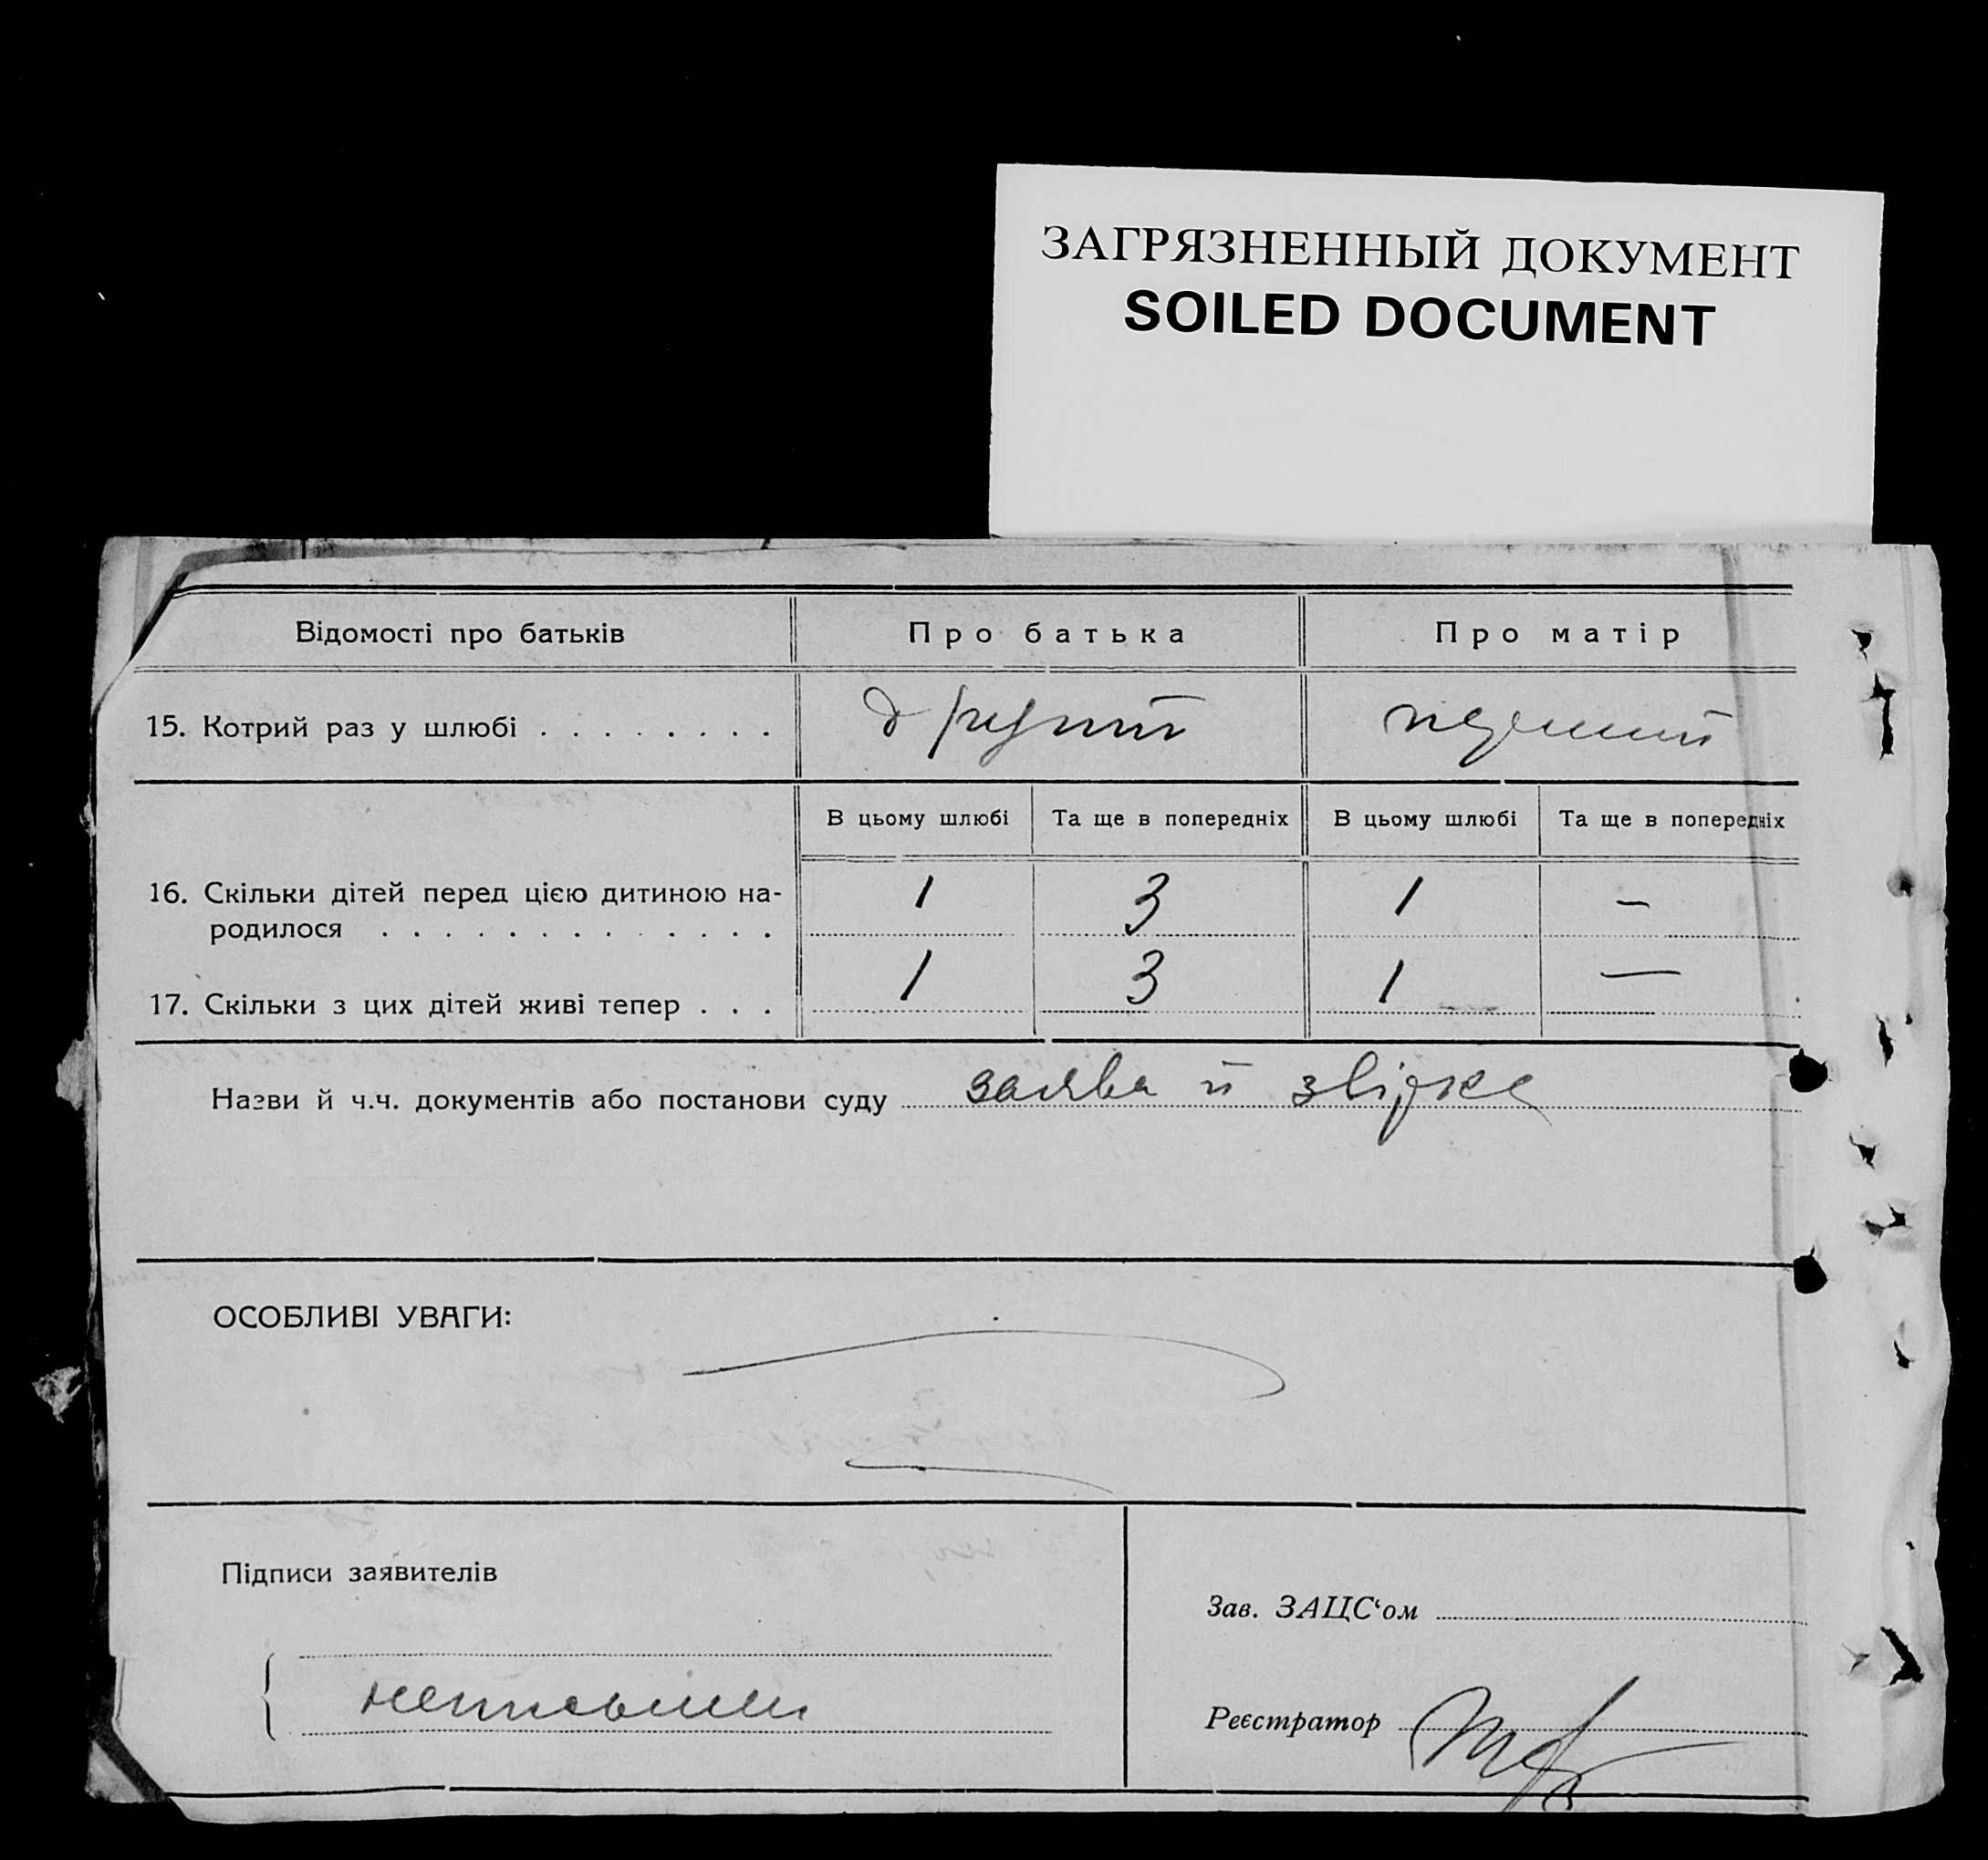 ЗАГРЯЗНЕННЫЙ ДОКУМЕНТ
SOILED DOCUMENT
Відомості про батьків Про батька Про матір
15. Котрий раз у шлюбі . . . . . . . . другий перший
В цьому шлюбі Та ще в попередніх В цьому шлюбі Та ще в попередніх
16. Скільки дітей перед цією дитиною на-
родилося . . . . . . . . . . . . . 1 3 1 —
17. Скільки з цих дітей живі тепер . . . 1 3 1 —
Назви й ч.ч. документів або постанови суду заява й звірка
ОСОБЛИВІ УВАГИ:
Підписи заявителів
Зав. ЗАЦС‘ом
неписьмен
Реєстратор